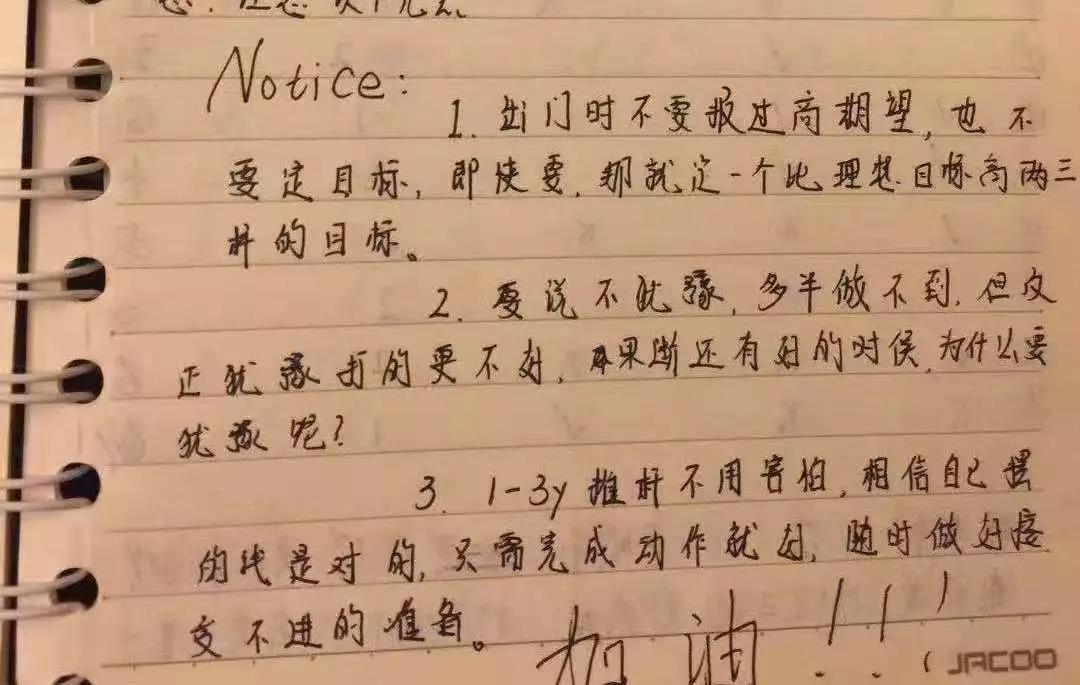 Notice:
1. 出门时不要报过高期望, 也不
要定目标, 即使要, 那就定一个比理想目标高两三
杆的目标。
2. 要说不犹豫, 多半做不到, 但反
正犹豫打的更不好, 果断还有好的时候, 为什么要
犹豫呢?
3. 1-3y 推杆不用害怕, 相信自己摆
的线是对的, 只需完成动作就好, 随时做好接
受不进的准备。
加油!!!
JACOO